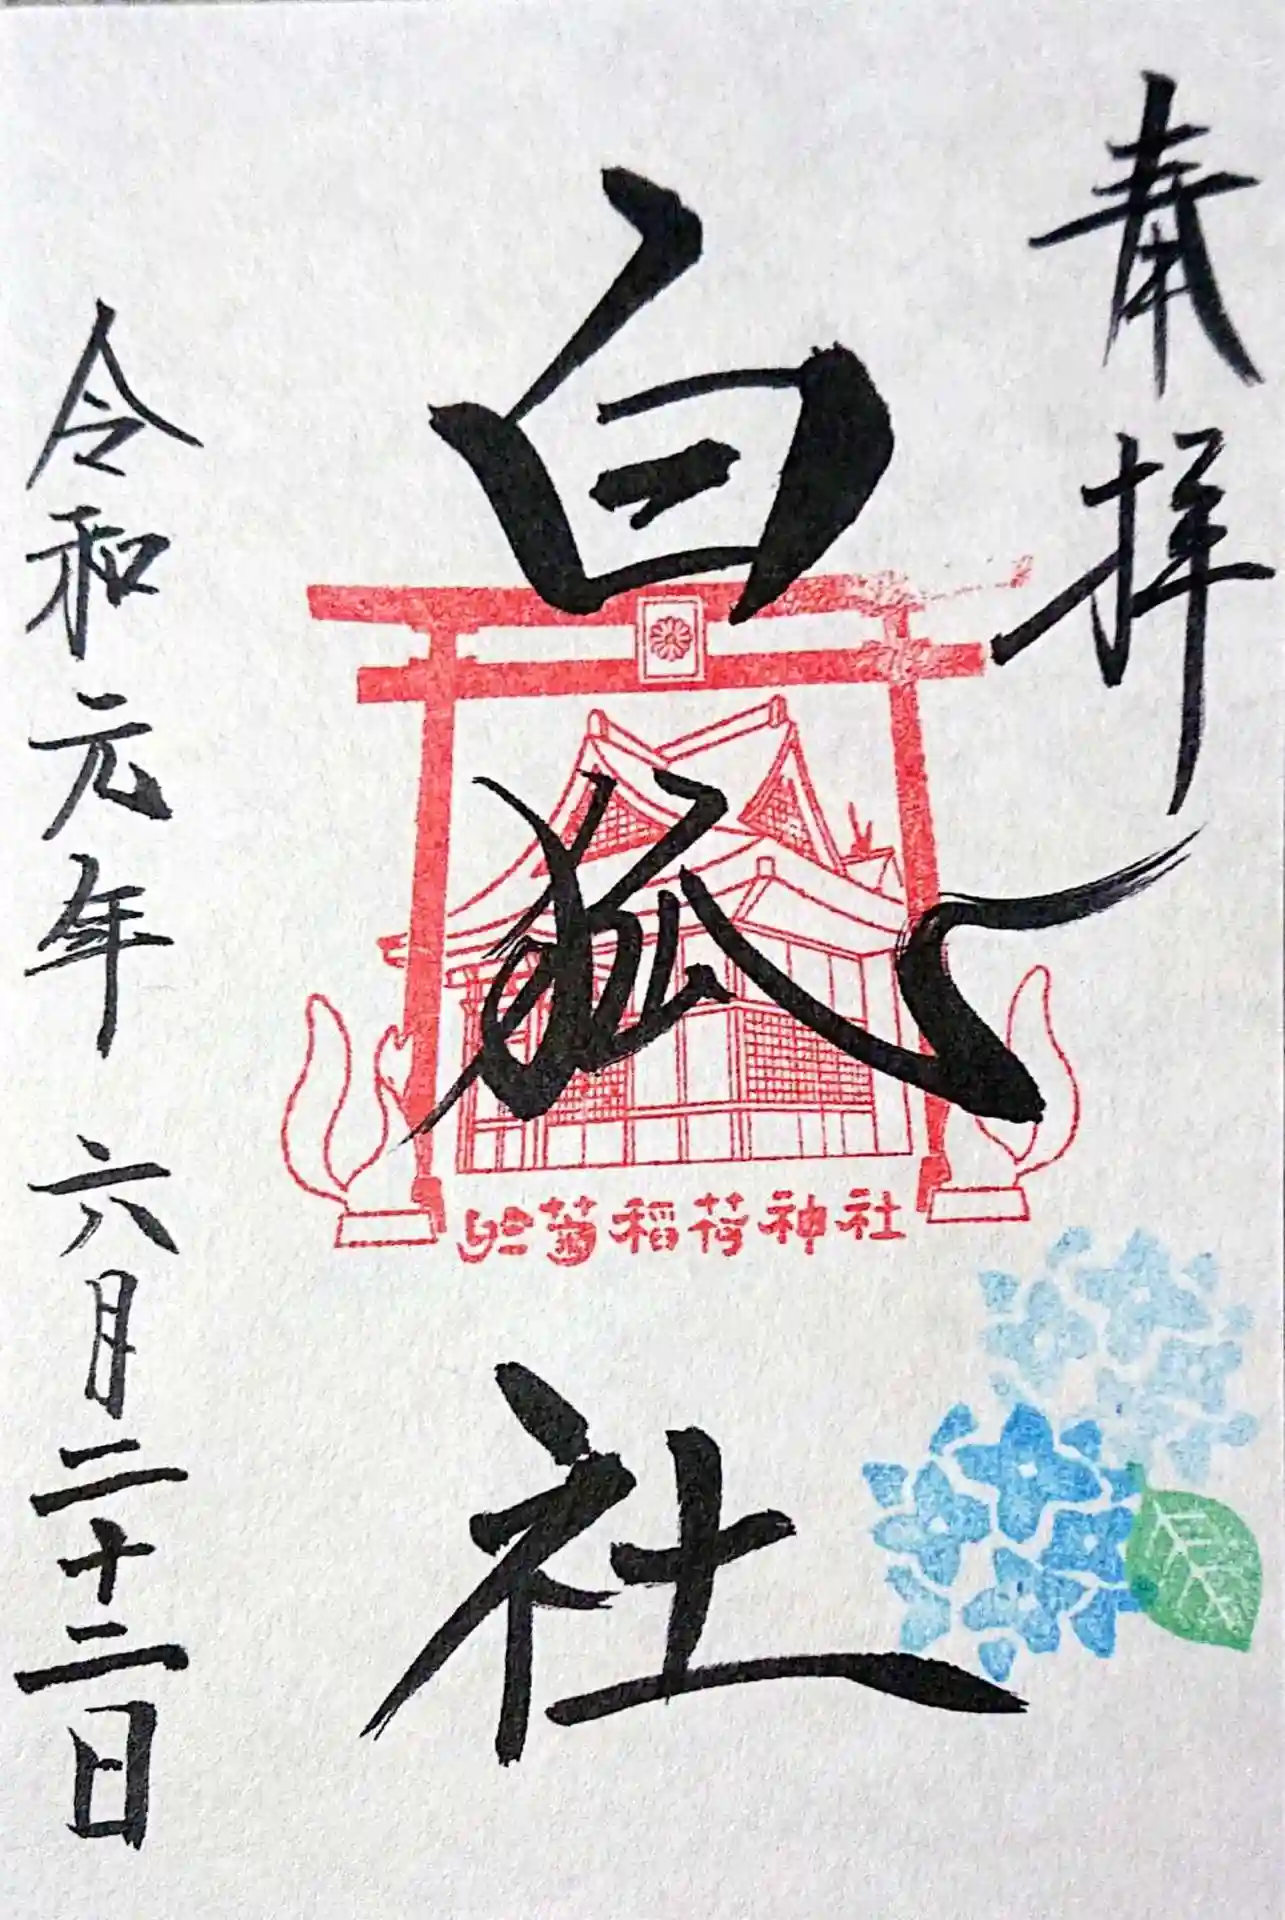 奉拝
白狐社
於菊稲荷神社
令和元年六月二十二日